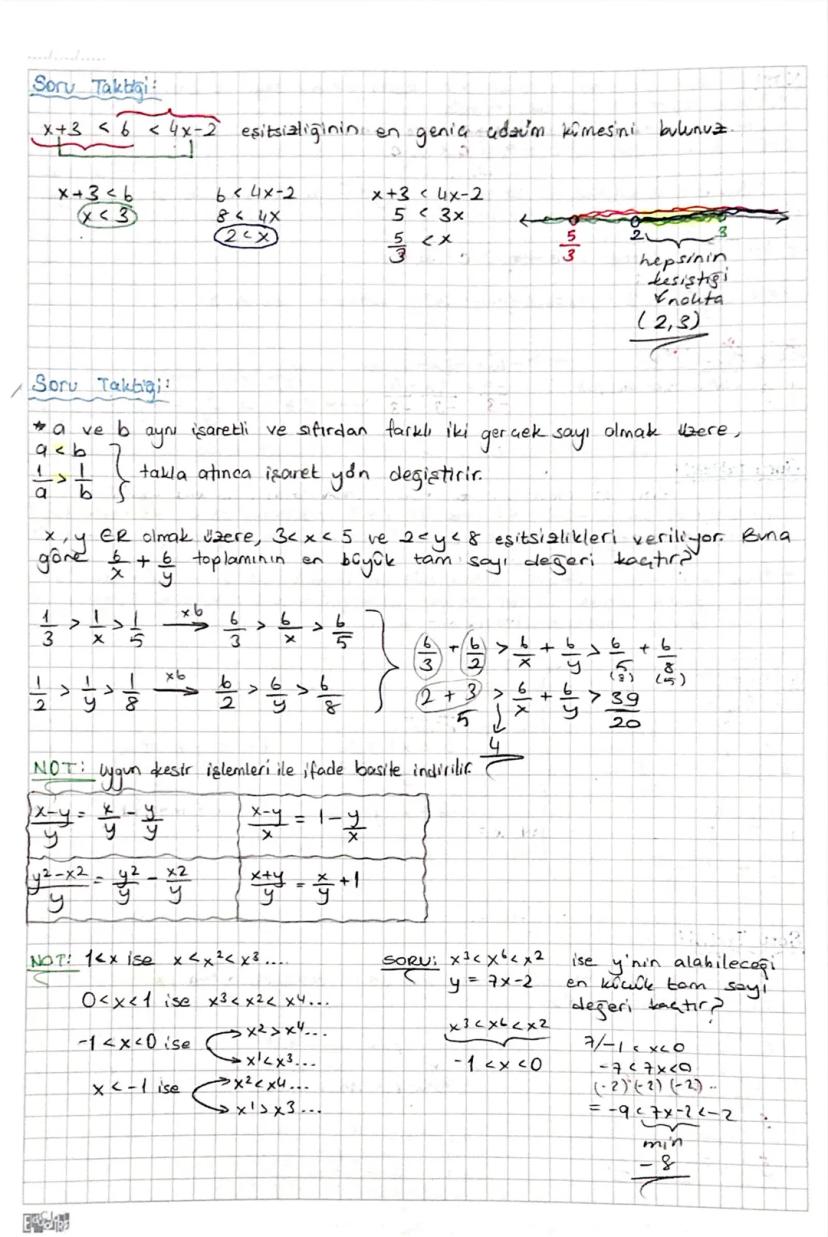 Soru Taktiği:
x+3 < 6 < 4x-2 eşitsizliğinin en geniş çözüm kümesini bulunuz.
x+3 < 6
x < 3
6 < 4x-2
8 < 4x
2 < x
x+3 < 4x-2
5 < 3x
5/3 < x
5/3 2 3
hepsinin
kesiştiği
nokta
(2,3)
Soru Taktiği:
* a ve b aynı işaretli ve sıfırdan farklı iki gerçek sayı olmak üzere,
a < b
1/a > 1/b } takla atınca işaret yön değiştirir.
x, y ∈R olmak üzere, 3<x<5 ve 2<y<8 eşitsizlikleri veriliyor. Buna
göre 6/x + 6/y toplamının en büyük tam sayı değeri kaçtır?
1/3 > 1/x > 1/5 x6→ 6/3 > 6/x > 6/5
1/2 > 1/y > 1/8 x6→ 6/2 > 6/y > 6/8
6/3 + 6/2 > 6/x + 6/y > 6/5 + 6/8
(8) (5)
2 + 3 > 6/x + 6/y > 39/20
5
4
NOT: Uygun kesir işlemleri ile ifade basite indirilir.
x-y/y = x/y - y/y
x-y/x = 1 - y/x
y2-x2/y = y2/y - x2/y
x+y/y = x/y + 1
NOT: 1<x ise x<x²<x³....
0<x<1 ise x3<x2<x4...
-1<x<0 ise
→x2>x4...
→x1<x3...
x<-1 ise
→x2<x4...
→x1>x3...
SORU: x3<x6<x2 ise y'nin alabileceği
y = 7x-2 en küçük tam sayı
değeri kaçtır?
x3<x6<x2
-1<x<0
7/-1<x<0
-7<7x<0
(-2) (-2) (-2) ..
= -9<7x-2<-2
min
-8